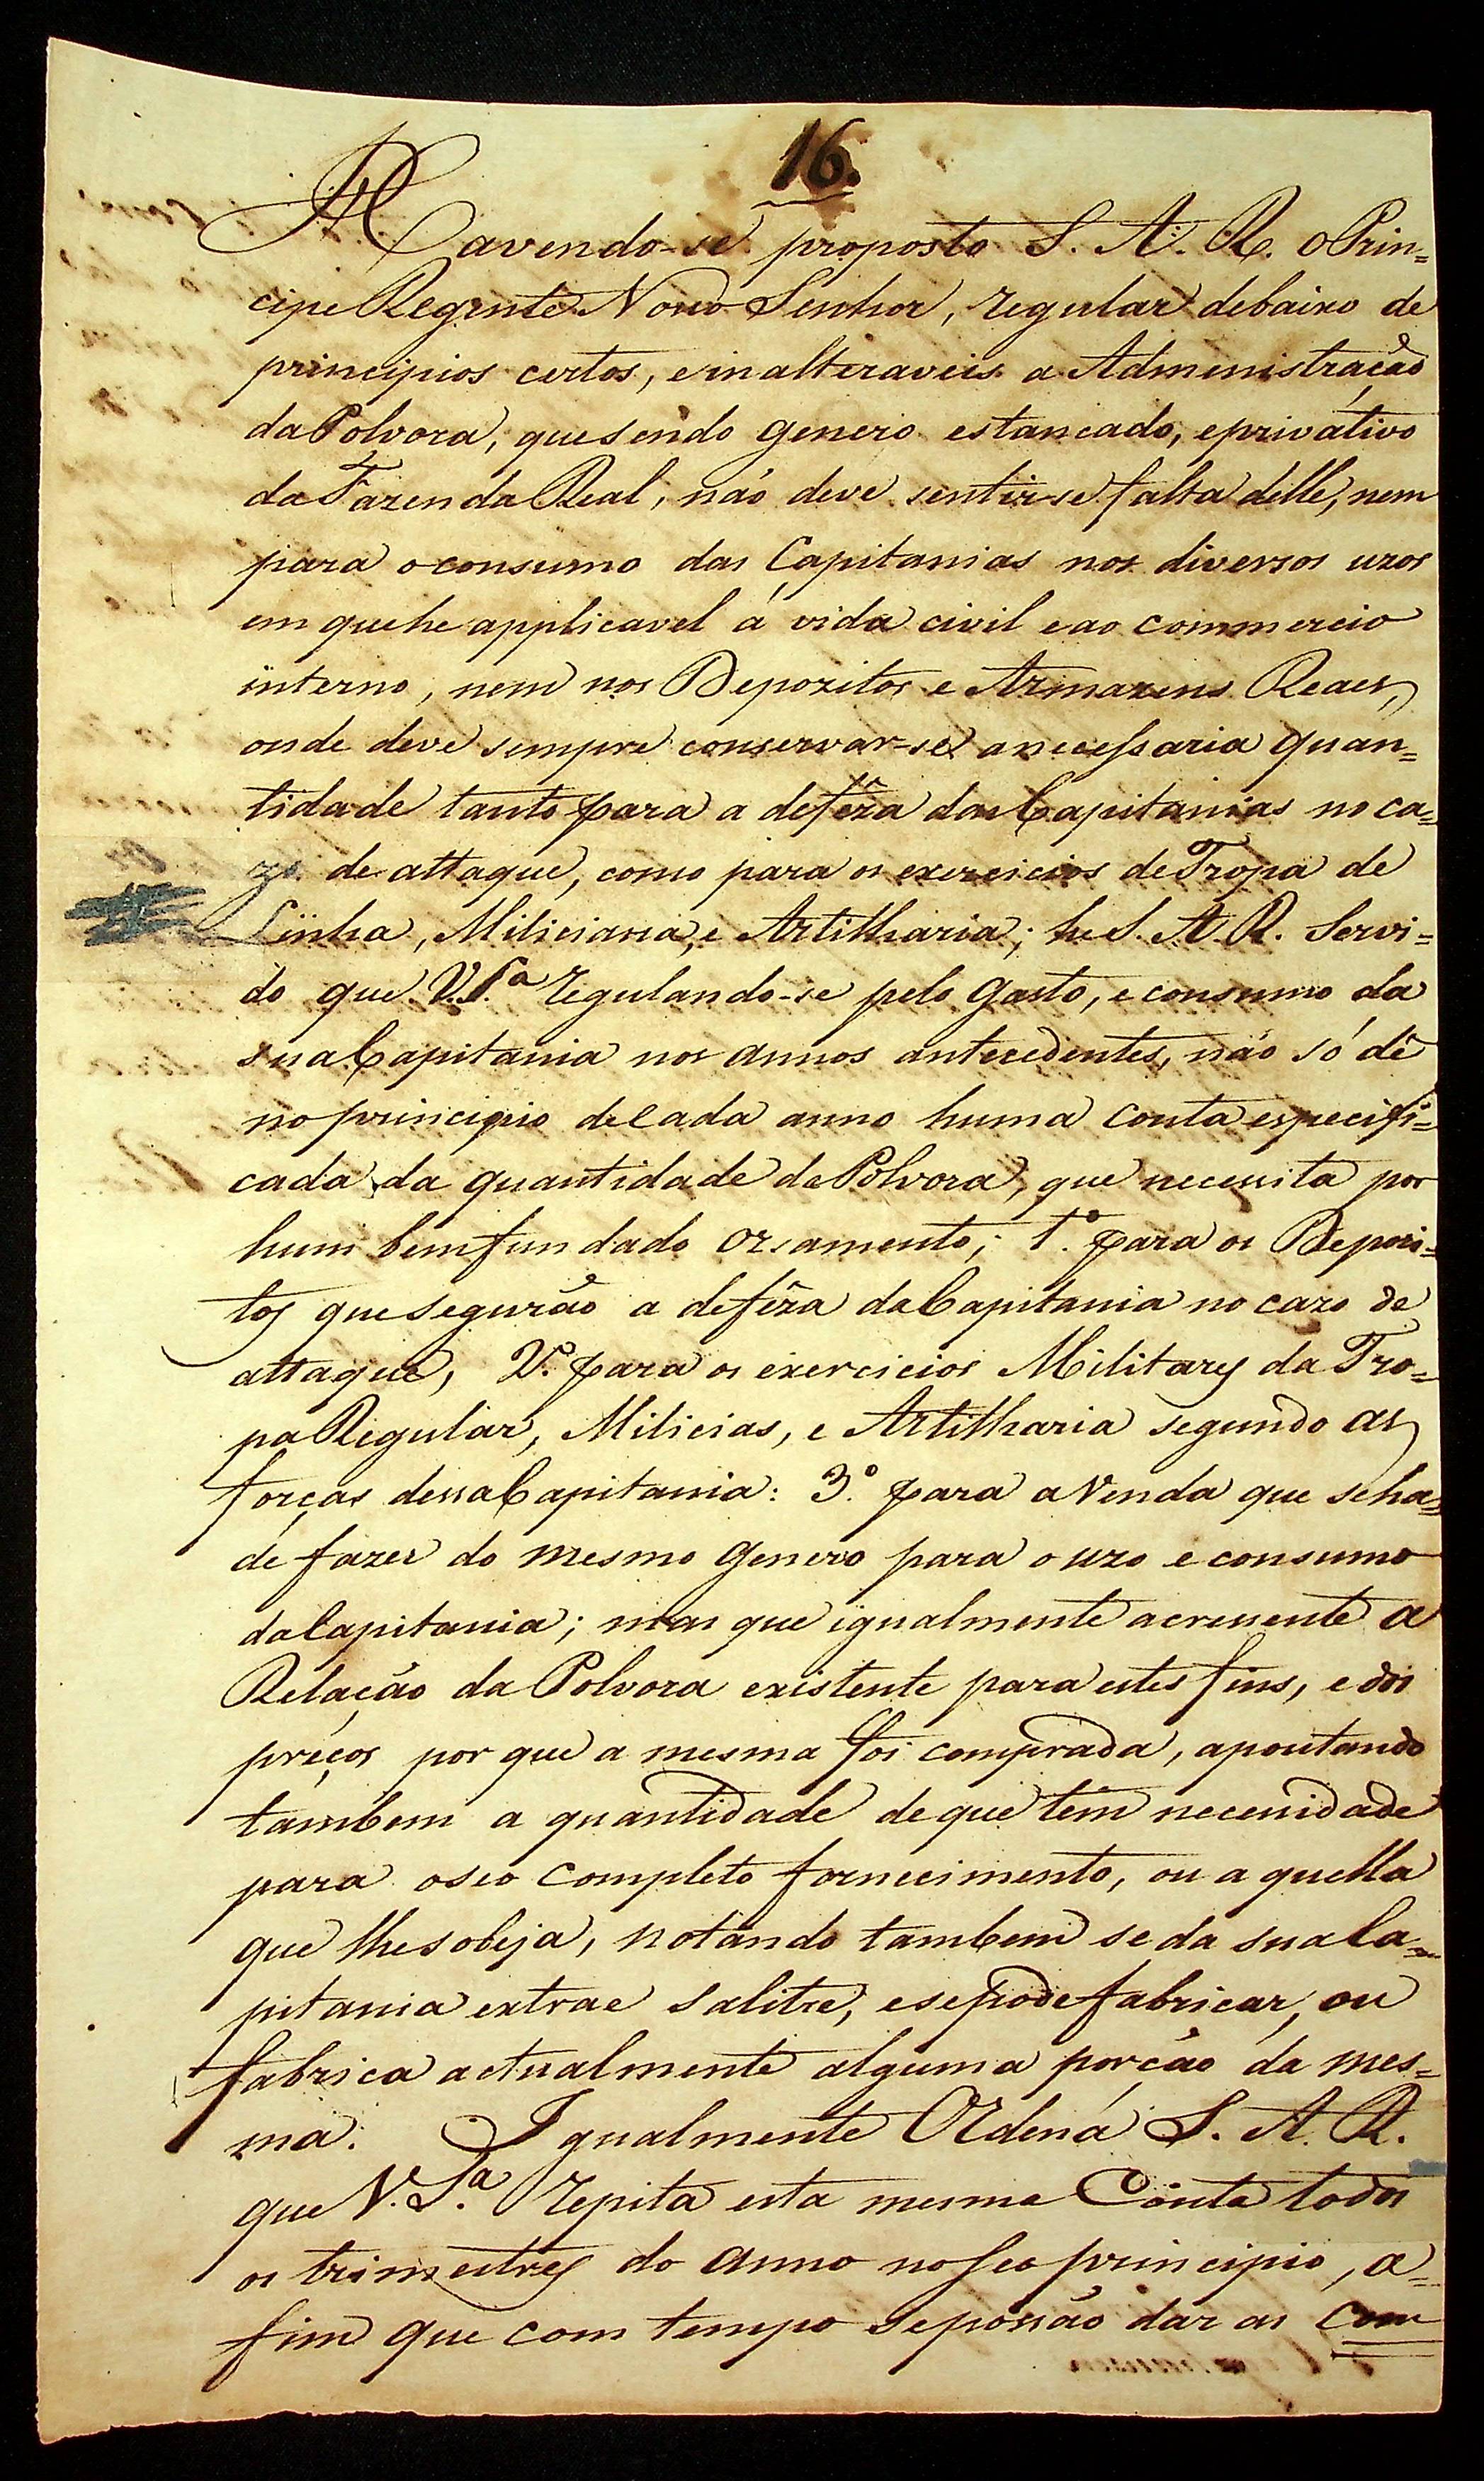 16.
Havendo-se proposto S. A. R. o Prin=
cipe Regente Nosso Senhor, regular debaixo de
principios certos, e inalteraveis a Admenistração
da Polvora, que sendo genero estancado, e privativo
da Fazenda Real, não deve sentir-se falta délle, nem
para o consumo das Capitanias nos diversos uzos
em que he applicavel á vida civil e ao commercio
interno, nem nos Depozitos e Armazens Reaes,
onde deve sempre conservar-se a necessaria quan=
tidade tanto para a defêza das Capitanias no ca=
zo de attaque, como para os exercicios de Tropa de
Linha, Miliciana, e Artilharia; he S. A. R. Servi=
do que V. S.ª regulando-se pelo gasto, e consumo da
sua Capitania nos annos antecedentes, não só dê
no principio de cada anno huma conta especifi=
cada da quantidade de Polvora, que necessita por
hum bem fundado orsamento; 1.º para os Deposi=
tos que segurão a defêza da Capitania no cazo de
attaque, 2.º para os exercicios Militares da Tro=
pa Regular, Milicias, e Artilharia segundo as
forças dessa Capitania: 3.º para a venda que se ha=
de fazer do mesmo genero para o uzo e consumo
da Capitania; mas que igualmente acressente a
Relação da Polvora existente para estes fins, e dos
preços por que a mesma foi comprada, apontando
tambem a quantidade de que têm necessidade
para o seo completo fornecimento, ou aquella
que lhe sobeja, notando tambem se da sua Ca=
pitania extrae salitre, e se pode fabricar, ou
fabrica actualmente alguma porção da mes=
ma. Igualmente Ordena S. A. R.
que V. S.ª repita esta mesma Conta todos
os trimestres do anno no seo principio, a=
fim que com tempo se possão dar as com